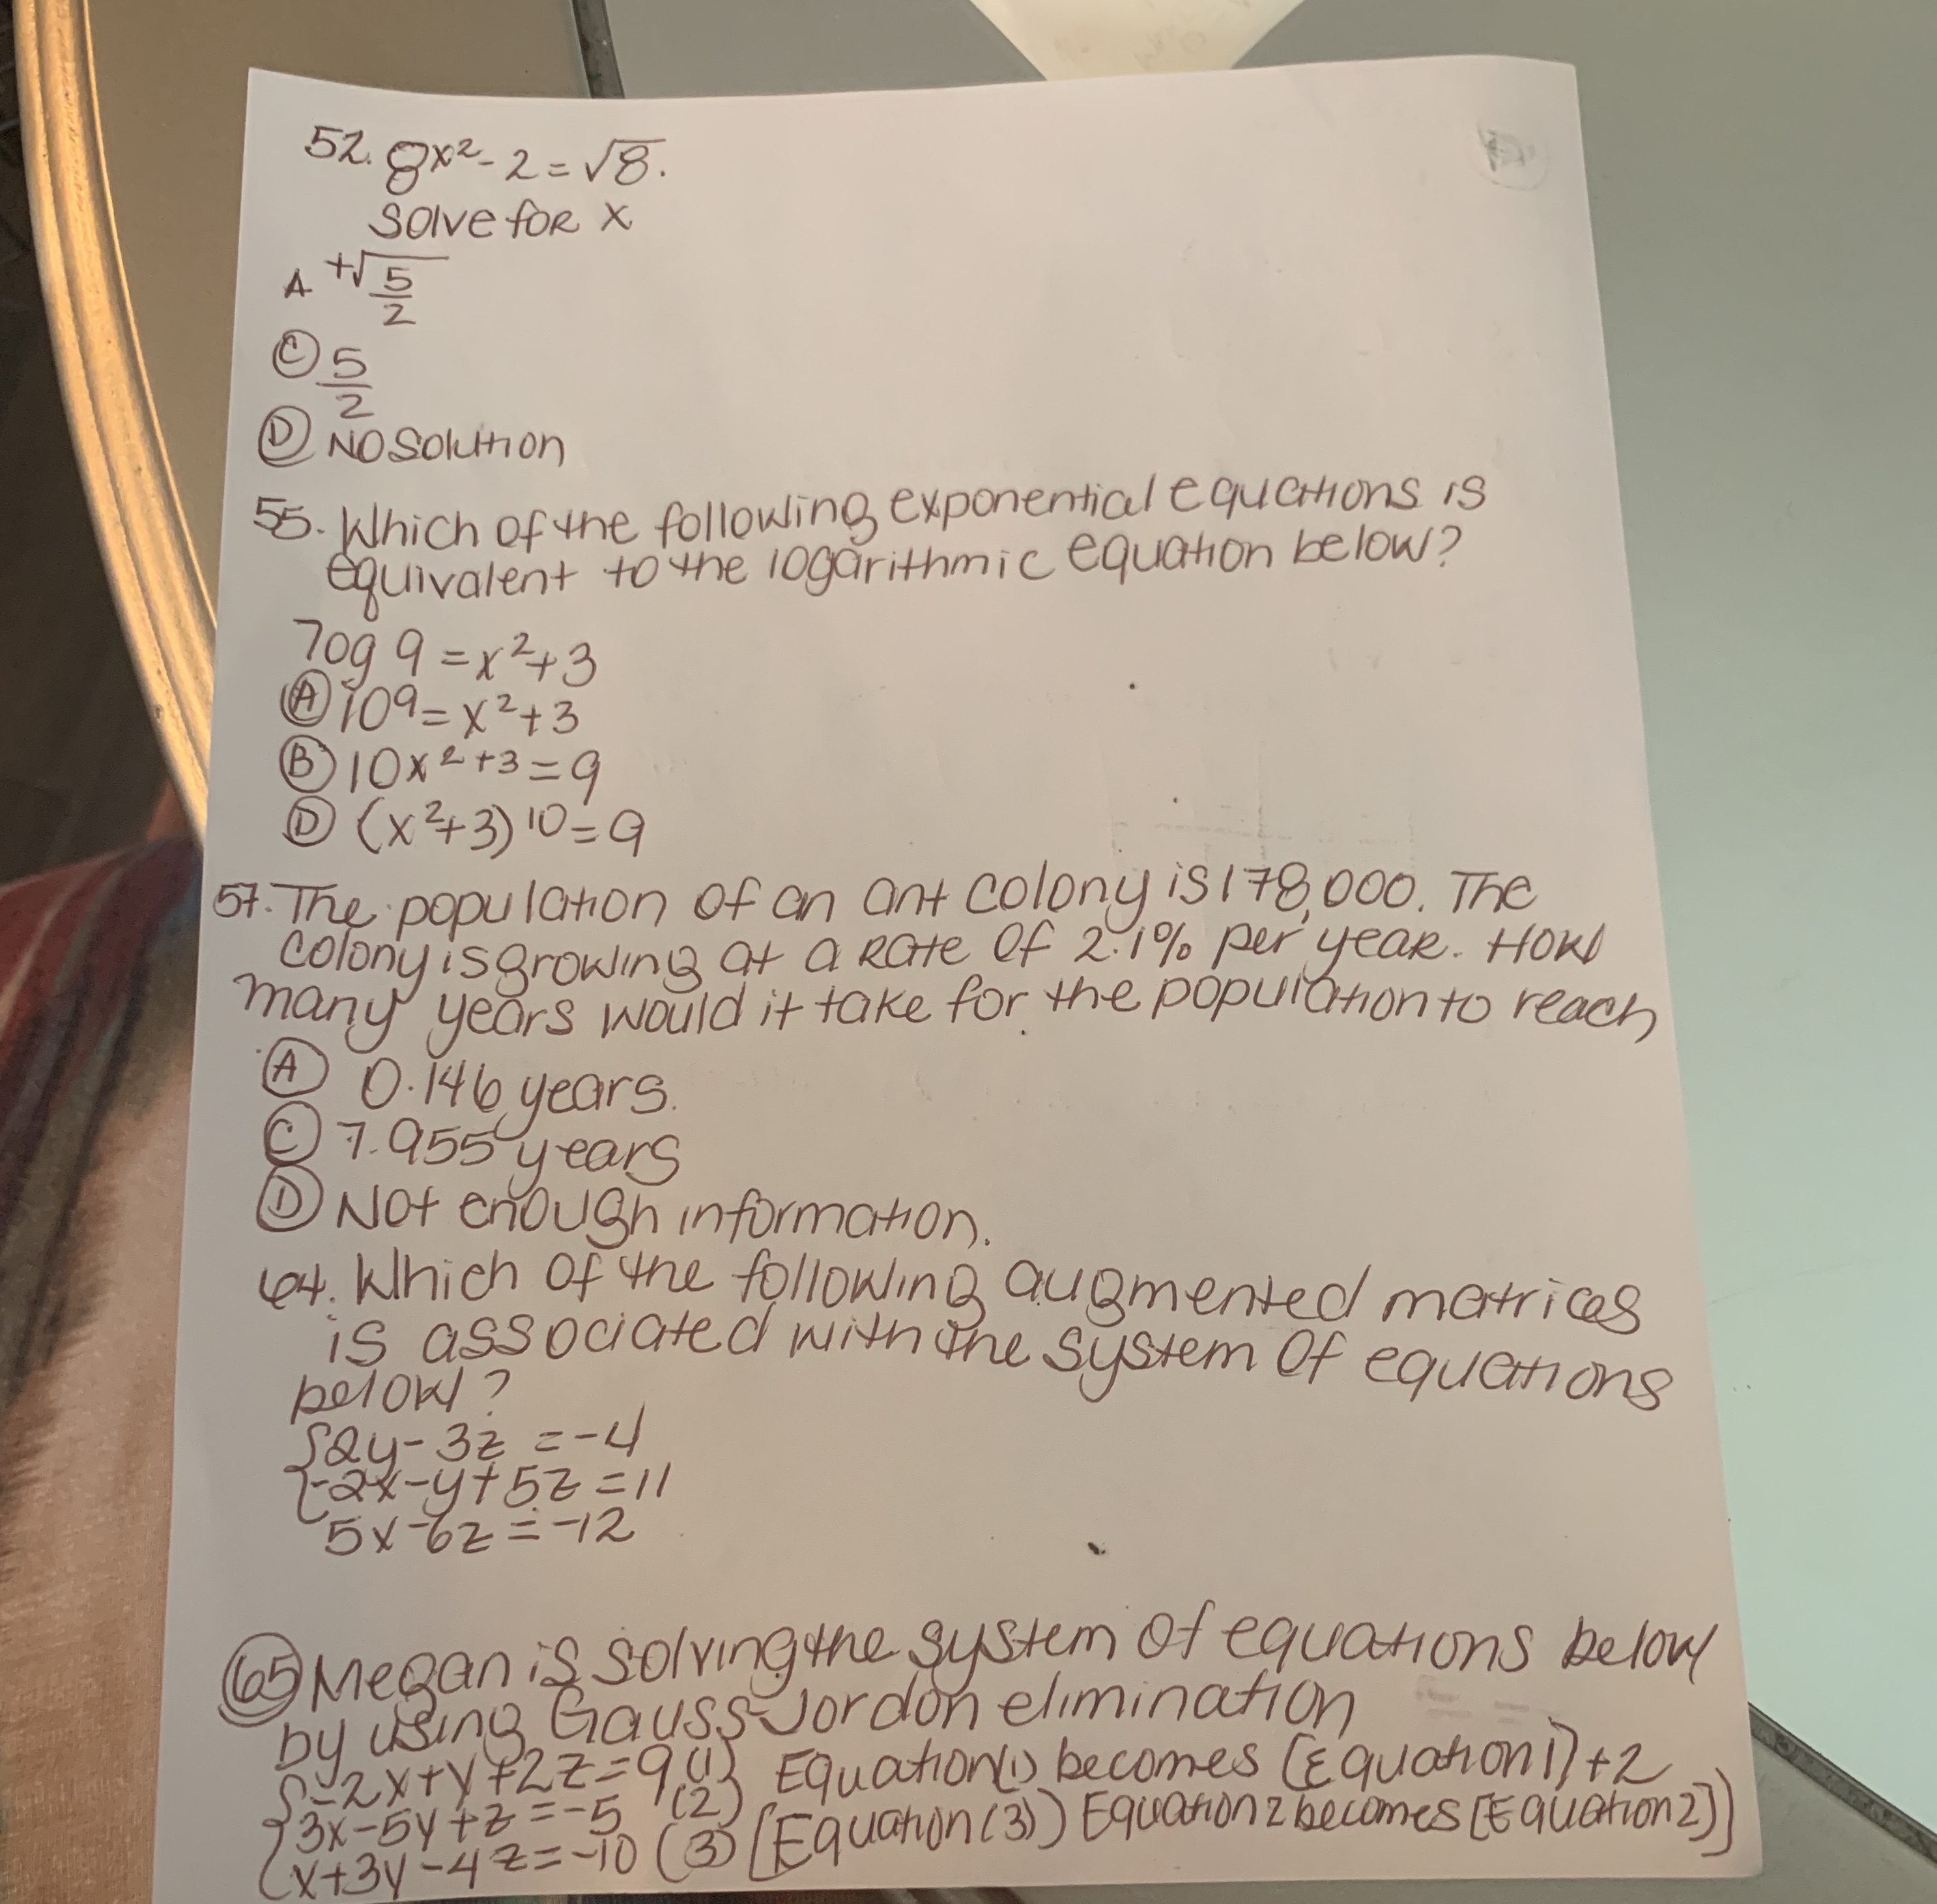 52. 8x²-2=√8.
Solve for x
A +√5/2
Ⓒ 5/2
Ⓓ NO Solution
55. Which of the following exponential equations is
equivalent to the logarithmic equation below?
7og 9 = x²+3
Ⓐ 10⁹ = x²+3
Ⓑ 10x²⁺³ = 9
Ⓓ (x²+3)¹⁰ = 9
57. The population of an ant colony is 178,000. The
colony is growing at a rate of 2.1% per year. How
many years would it take for the population to reach
Ⓐ 0.146 years.
Ⓒ 7.955 years
Ⓓ Not enough information.
64. Which of the following augmented matrices
is associated with the system of equations
below?
{2y-3z = -4
{-2x-y+5z = 11
5x-6z = -12
(65) Megan is solving the system of equations below
by using Gauss-Jordon elimination
{-2x+y+2z=9 (1) Equation(1) becomes [Equation 1)+2
{3x-5y+z=-5 (2) [Equation(3)) Equation 2 becomes [Equation 2])
{x+3y-4z=-10 (3)